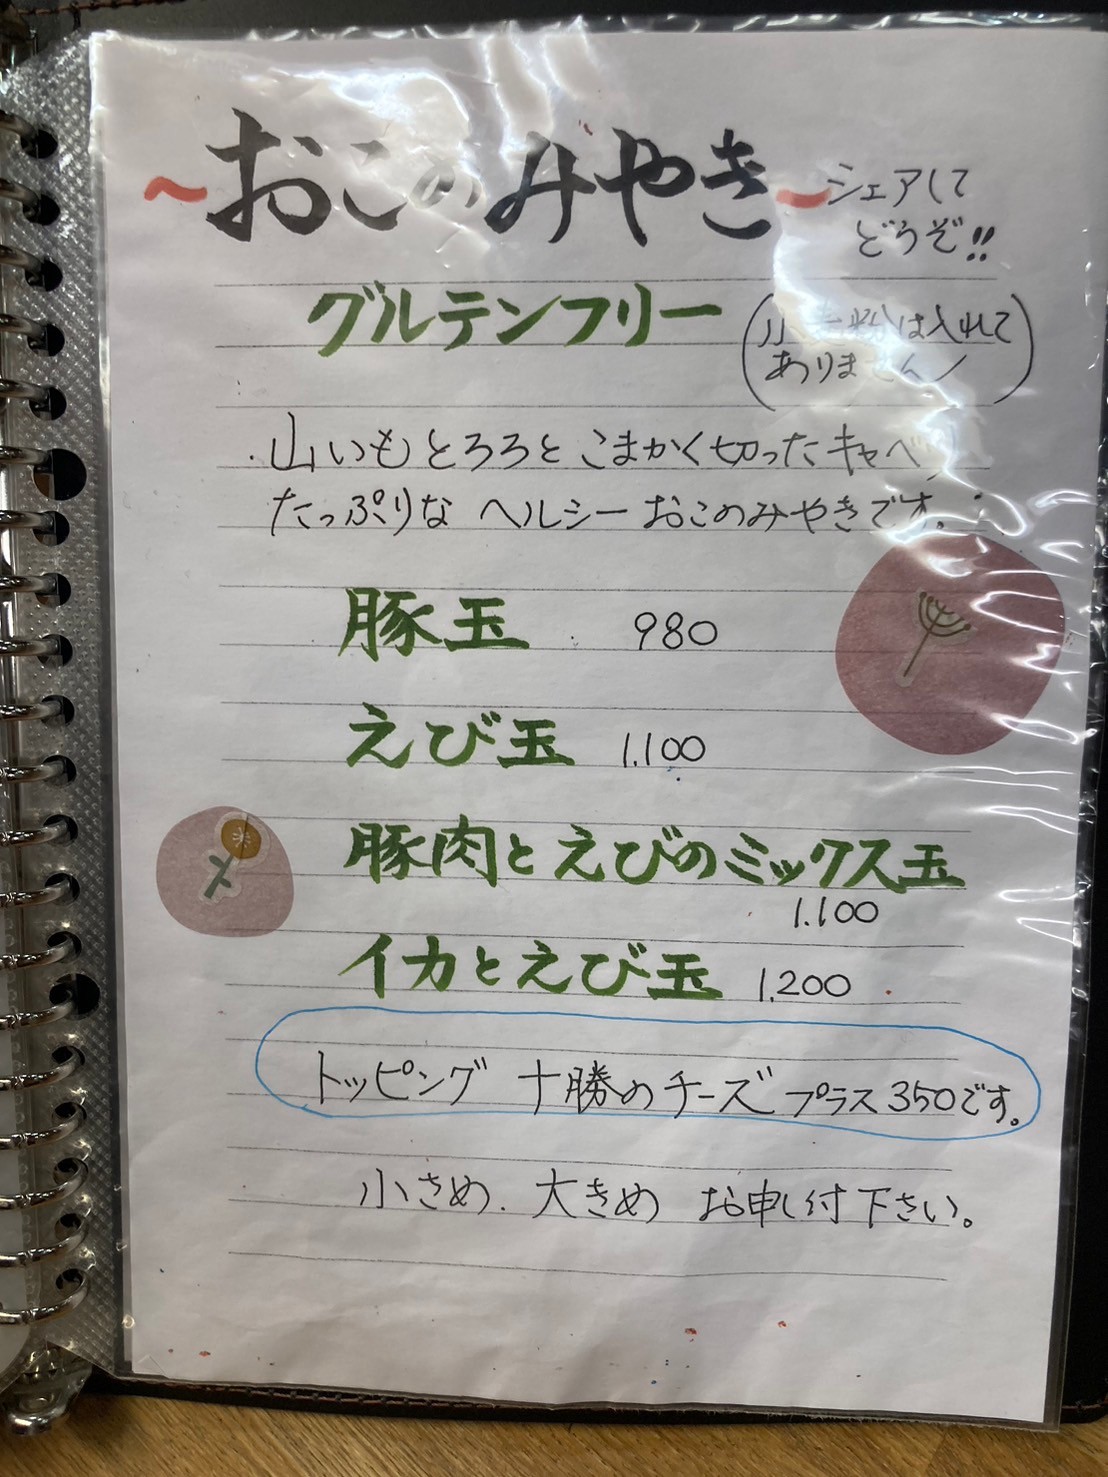 ~おこのみやき~
シェアして
どうぞ!!
グルテンフリー
(小麦粉は入れて
ありません)
・山いもとろろとこまかく切ったキャベツ
たっぷりな ヘルシー おこのみやきです。
豚玉 980
えび玉 1.100
豚肉とえびのミックス玉
1.100
イカとえび玉 1.200
トッピング 十勝のチーズ プラス350です。
小さめ. 大きめ お申し付下さい。